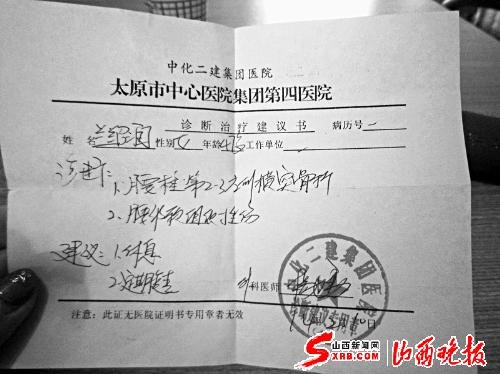 中化二建集团医院
太原市中心医院集团第四医院
诊断治疗建议书 病历号
姓名 性别 女 年龄 工作单位
诊断：1、腰椎第2-3左侧横突骨折
2、腰部软组织挫伤
建议：1、休息
2、定期复查
科医师
注意：此证无医院证明书专用章者无效
中化二建集团医院
山西新闻网
SXRB.COM
山西晚报